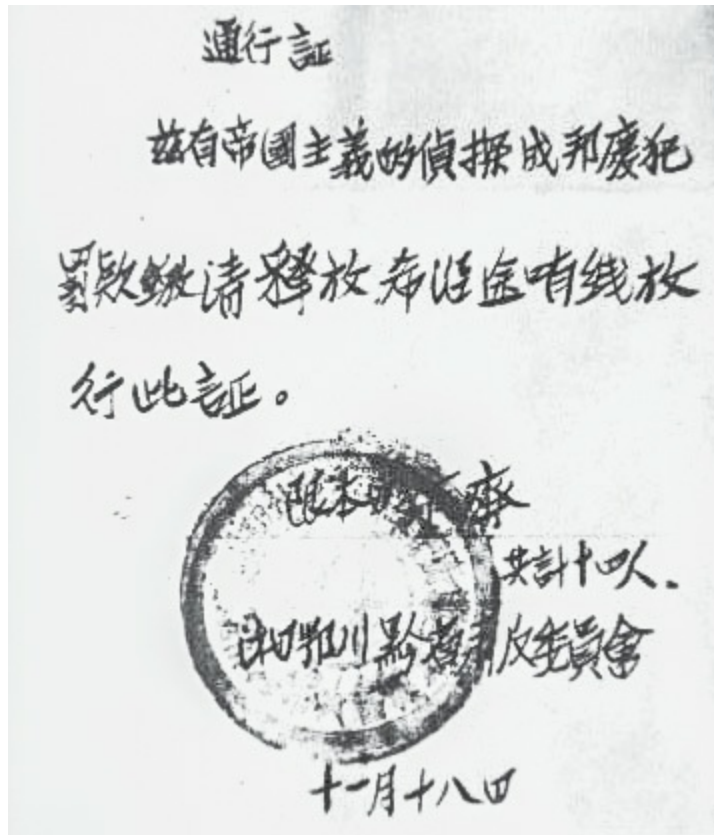 通行証
茲有帝國主義的偵探成邦慶犯
罰欵繳清釋放希沿途哨线放
行此証。
限本日
共計十四人.
湘鄂川黔省肅反委員會
十一月十八日